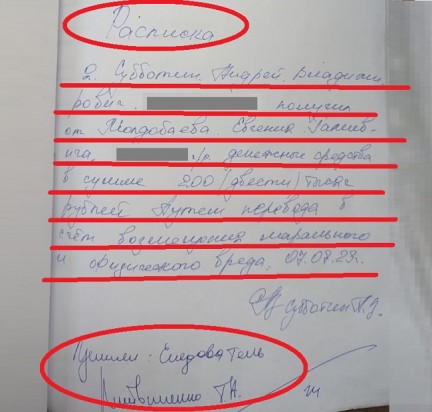 Расписка
Я, Субботин Андрей Владими
рович, получил
от Молдобаева Евгения
г/р денежные средства
в сумме 200 (двести) тысяч
рублей путем перевода в
счёт возмещения морального
и физического вреда. 07.08.23г.
Субботин А.В.
Приняла: Следователь